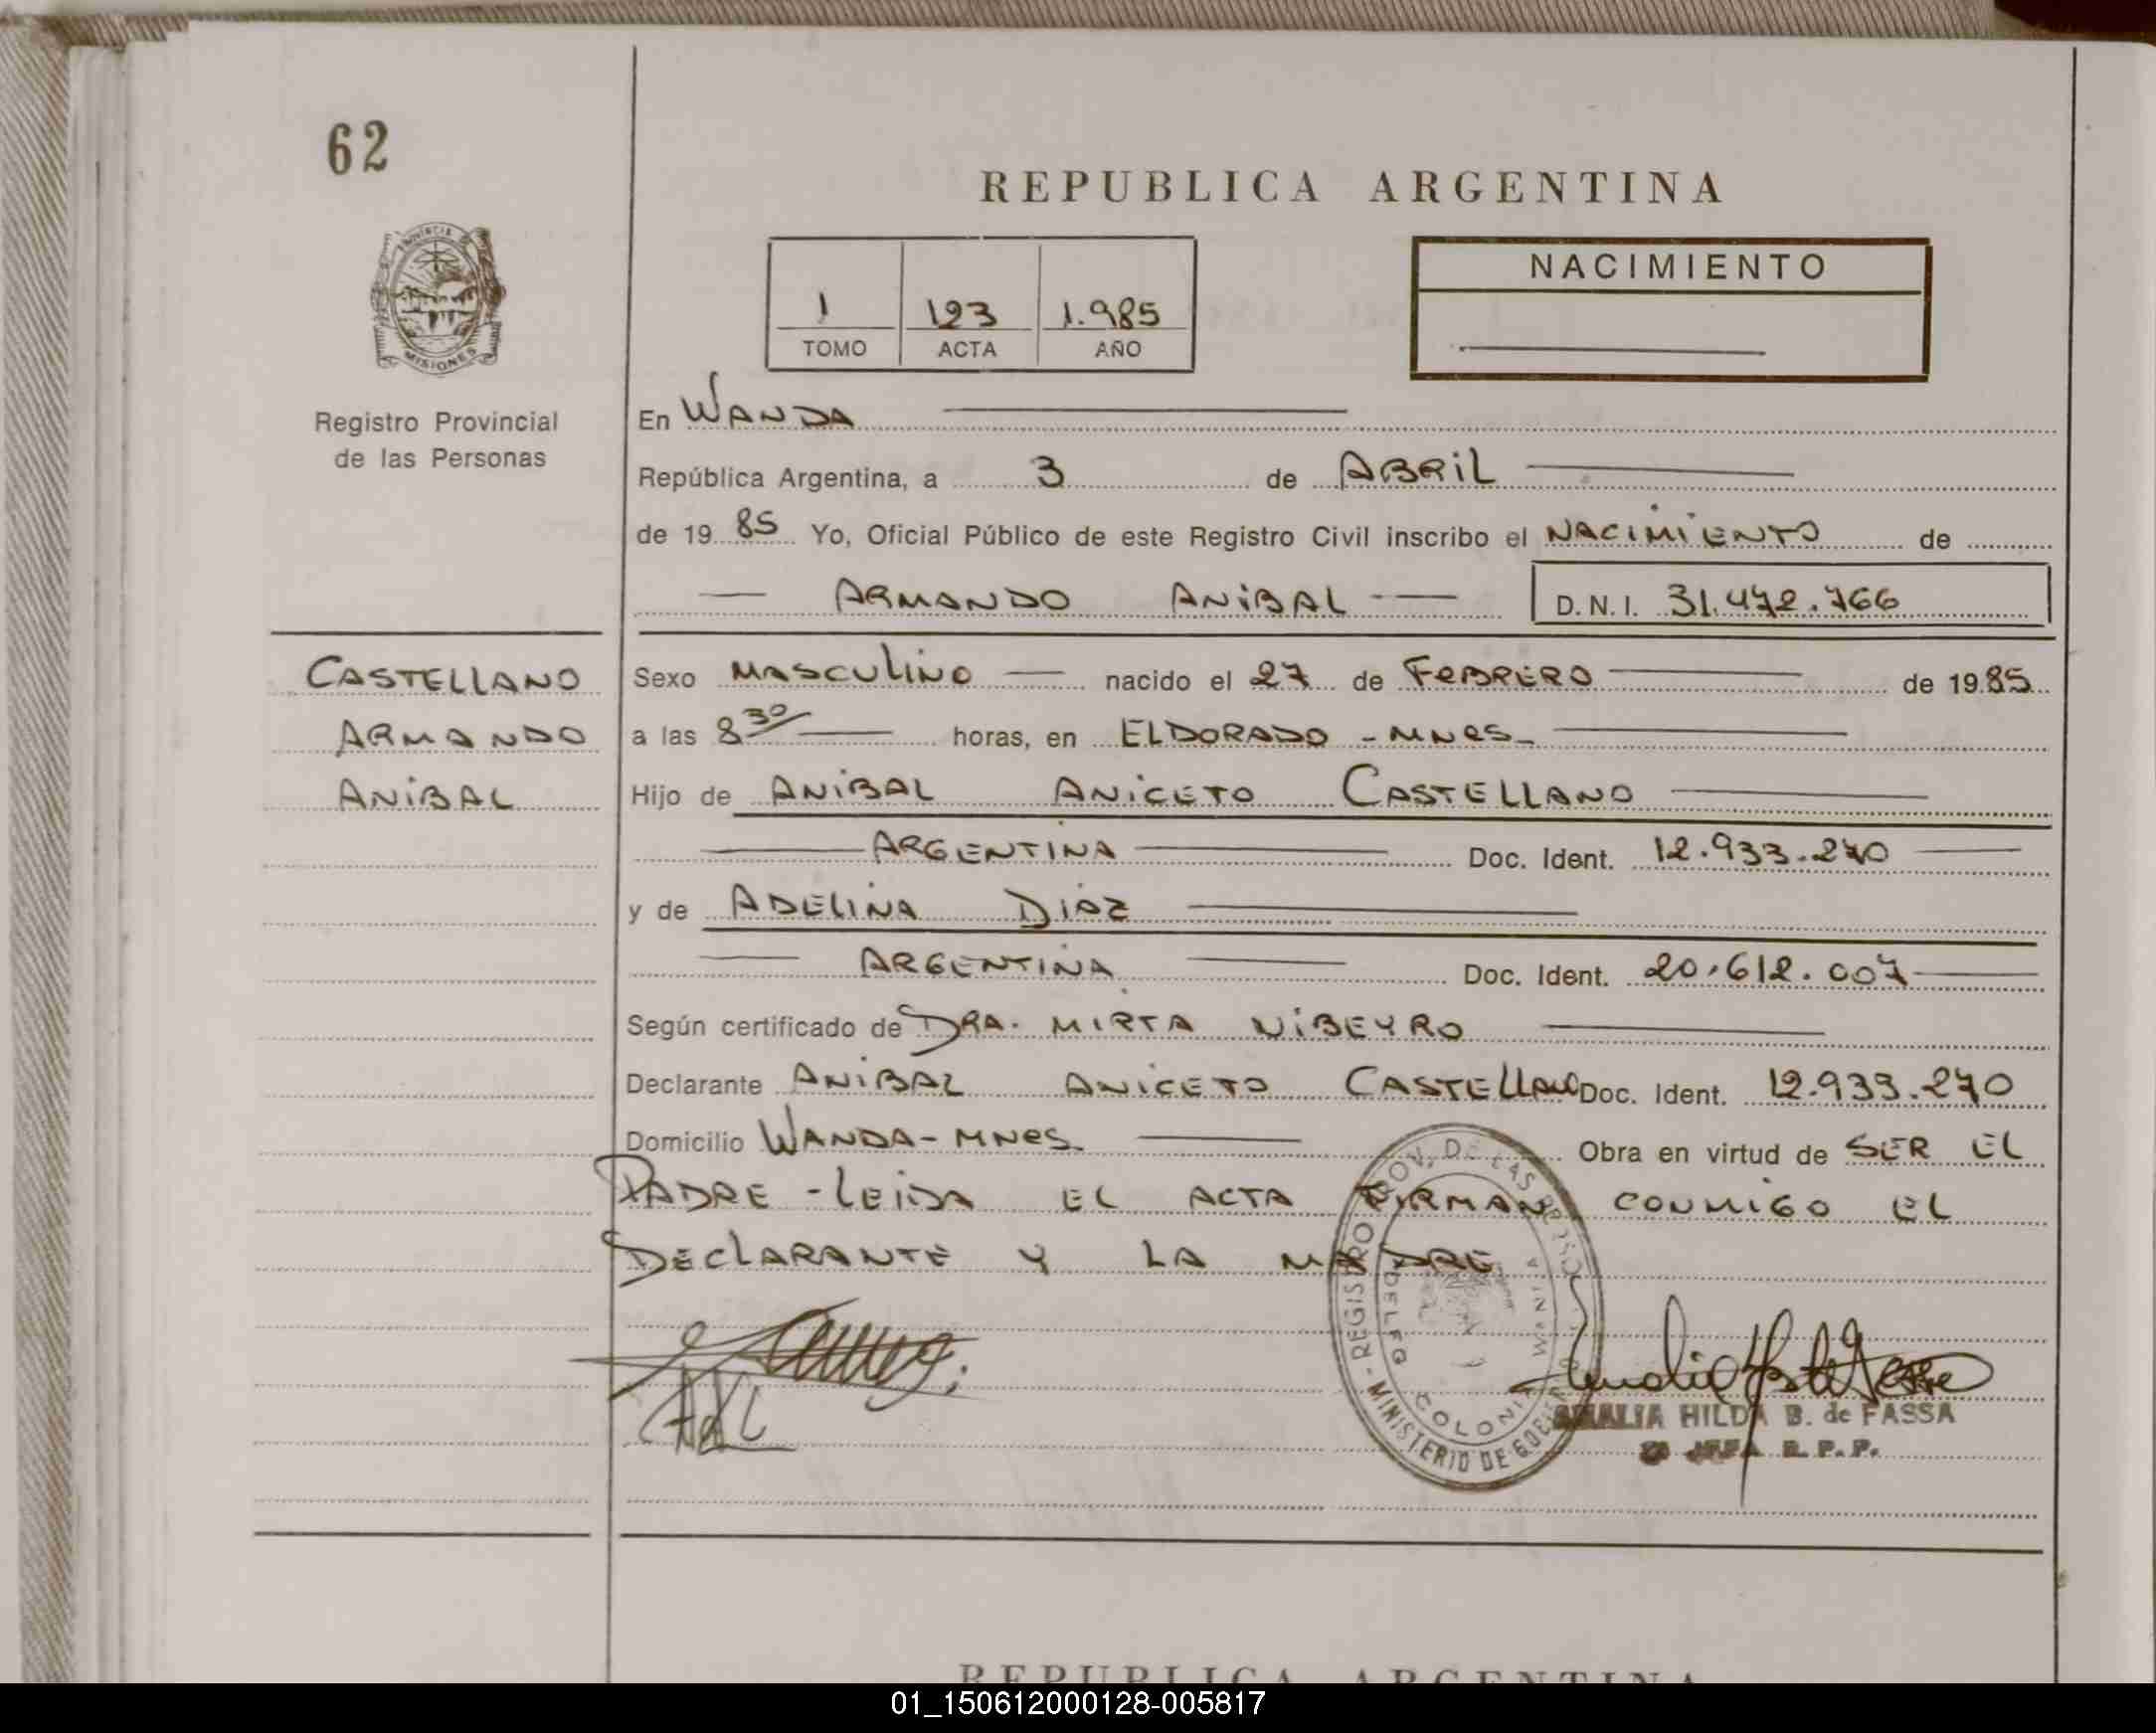 62
REPUBLICA ARGENTINA
PROVINCIA D
MISIONES
1 123 1.985
TOMO ACTA AÑO
NACIMIENTO
Registro Provincial
de las Personas
En WANDA
República Argentina, a 3 de ABRIL
de 19 85 Yo, Oficial Público de este Registro Civil inscribo el NACIMIENTO de
ARMANDO ANIBAL D.N.I. 31.472.766
CASTELLANO
ARMANDO
ANIBAL
Sexo MASCULINO nacido el 27 de FEBRERO de 19 85
a las 8 30 horas, en ELDORADO - MNES-
Hijo de ANIBAL ANICETO CASTELLANO
ARGENTINA Doc. Ident. 12.933.270
y de ADELINA DIAZ
ARGENTINA Doc. Ident. 20.612.007
Según certificado de DRA. MIRTA NIBEYRO
Declarante ANIBAL ANICETO CASTELLANO Doc. Ident. 12.933.270
Domicilio WANDA - MNES Obra en virtud de SER EL
PADRE - LEIDA EL ACTA FIRMAN CONMIGO EL
DECLARANTE Y LA MADRE
REGISTRO PROV. DE LAS PERSONAS
MINISTERIO DE GOBIERNO
COLONIA WANDA
AMALIA HILDA B. de FASSA
JEFA R.P.P.
REPUBLICA ARGENTINA
01_150612000128-005817